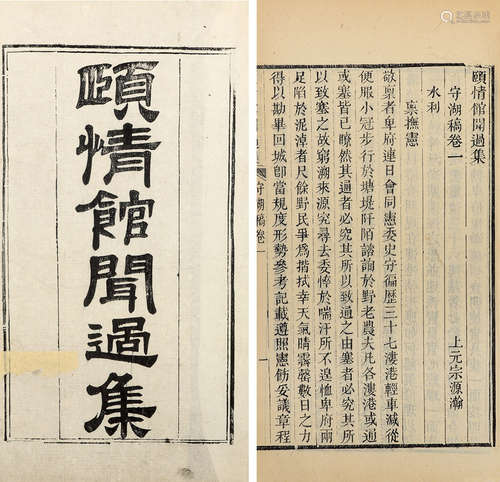 頤情館聞過集
頤情館聞過集
守湖稿卷一
上元宗源瀚
水利
稟撫憲
敬稟者卑府連日會同憲委史守徧歷三十七漊港輕車減從
便服小冠步行於塘堤阡陌諮諭於野老農夫凡各漊港或通
或塞皆已瞭然其通者必究其所以致通之由塞者必究其所
以致塞之故窮溯來源究尋去委悴於喘汗所不遑恤卑府兩
足陷於泥淖者尺餘野民爭爲揩拭幸天氣晴霽罄數日之力
得以勘畢回城卽當規度形勢參考記載遵照憲飭妥議章程
守湖稿卷一
一